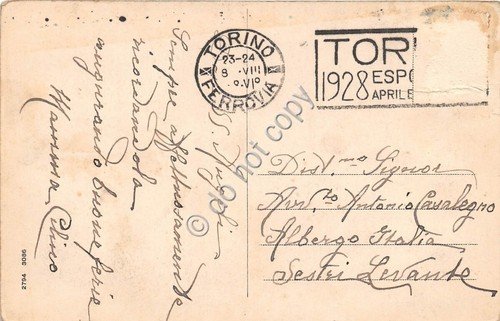 TORINO
23-24
8 VIII
FERROVIA
TOR
1928 ESPO
APRILE
Sempre affettuosamente
ricordandola
augurando buone ferie
Mamma
Dist.mo Signor
Avv.to Antonio Casalegno
Albergo Italia
Sestri Levante
© do not copy
2794 3086